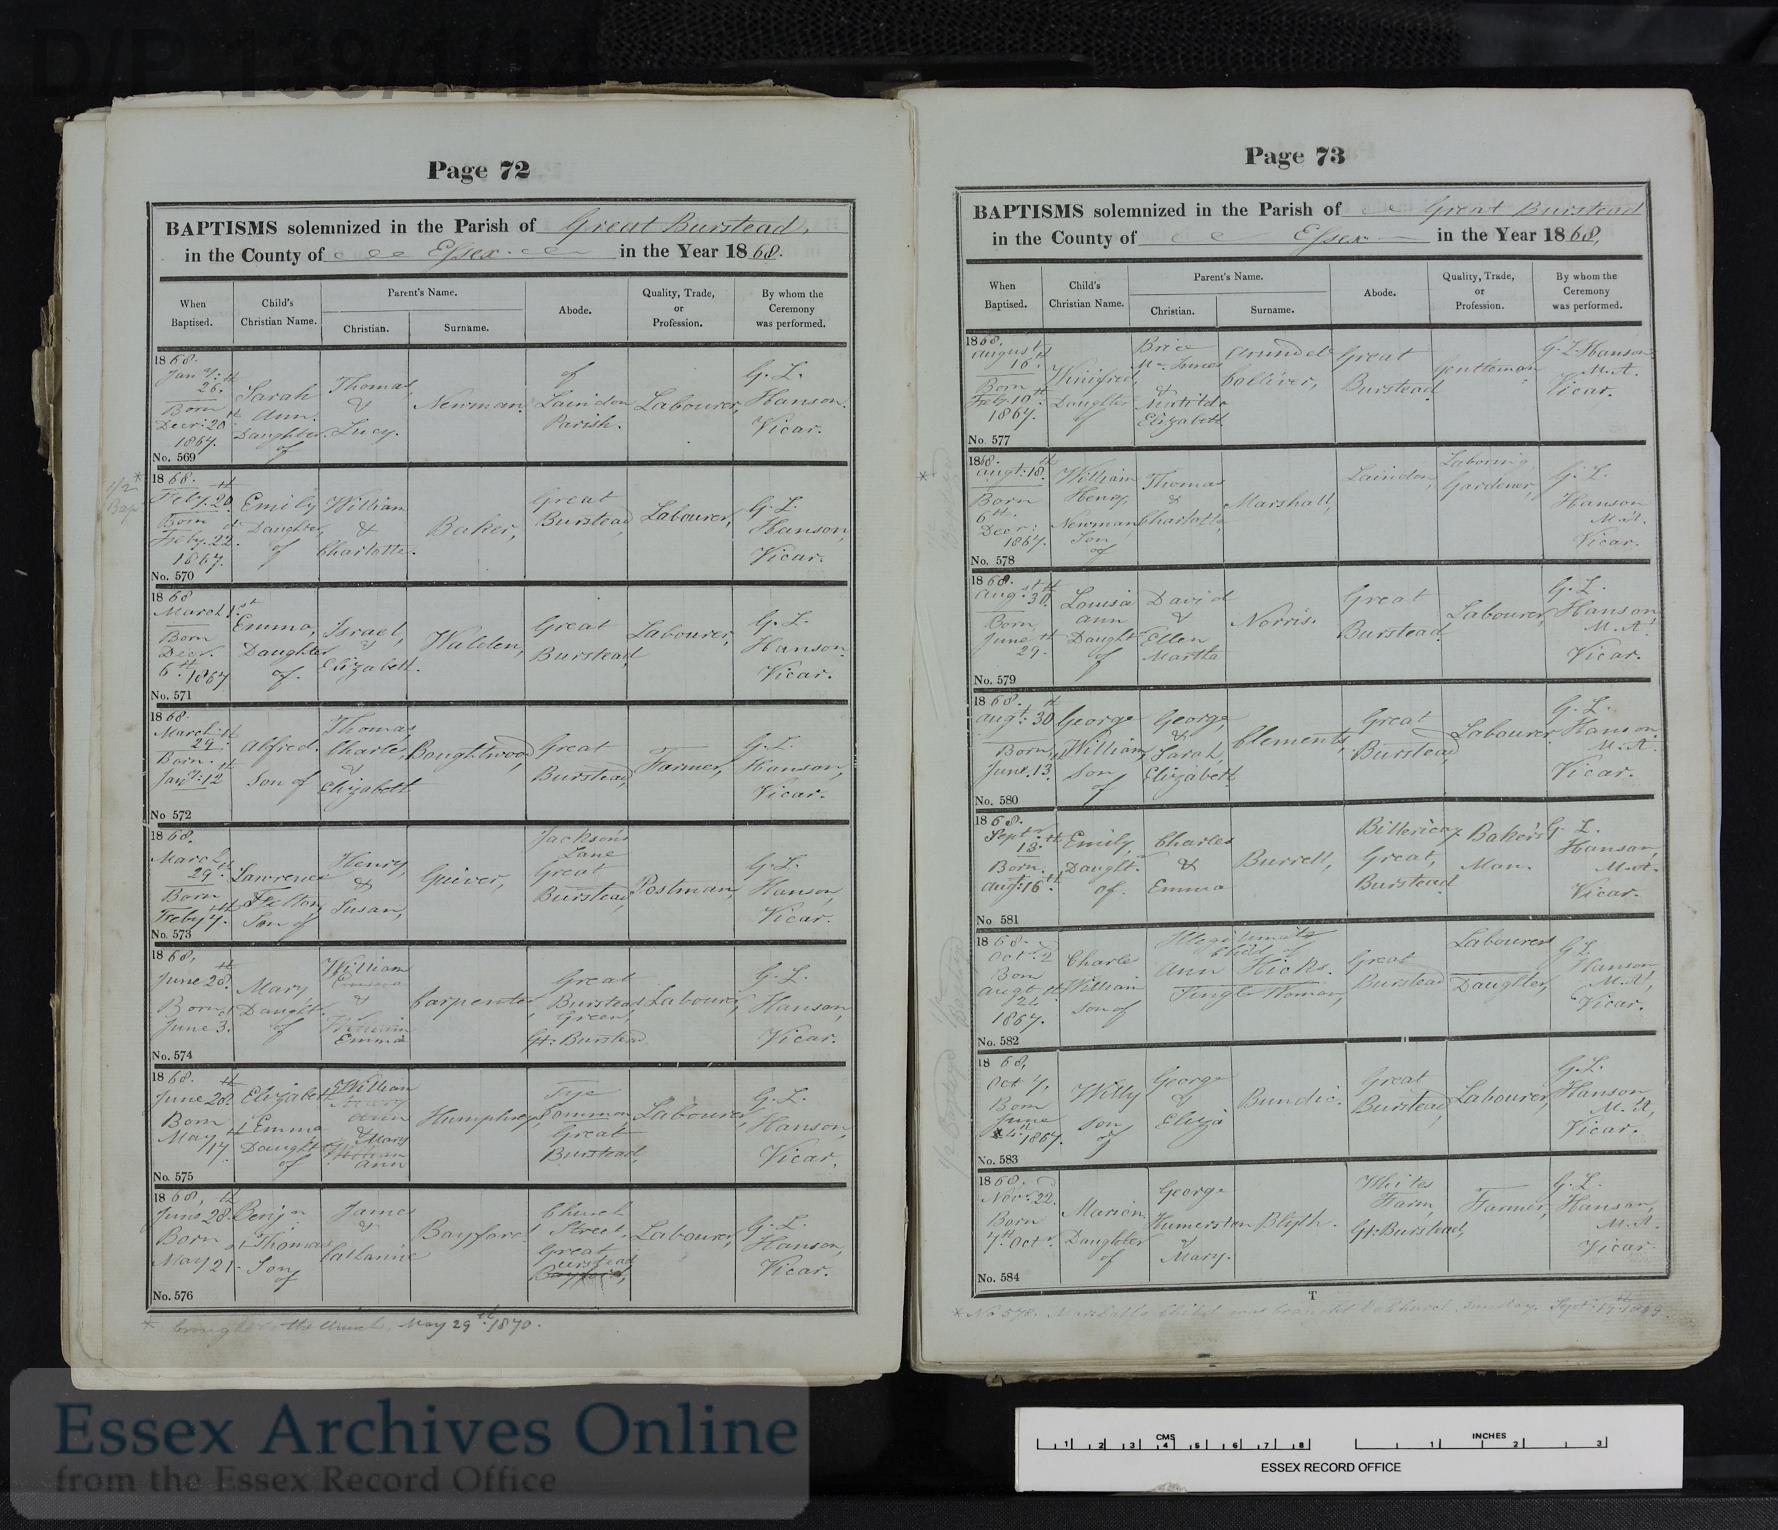 D/P 139/1/14
Page 72
BAPTISMS solemnized in the Parish of Great Burstead,
in the County of Essex in the Year 1868.
When Baptised.
Child's Christian Name.
Parent's Name.
Christian.
Surname.
Abode.
Quality, Trade, or Profession.
By whom the Ceremony was performed.
1868. Jany. 26th Born Decr. 20th 1867. No. 569
Sarah Ann. Daughter of
Thomas & Lucy.
Newman.
of Laindon Parish.
Labourer,
G. L. Hanson. Vicar.
1/2 Bap *
1868. Feby. 20th Born Feby. 22d 1867. No. 570
Emily Daughter of
William & Charlotte.
Baker,
Great Burstead,
Labourer,
G. L. Hanson, Vicar.
1868 March 1st Born Decr. 6th 1867 No. 571
Emma, Daughter of.
Israel, & Elizabeth.
Walden,
Great Burstead,
Labourer,
G. L. Hanson. Vicar.
1868. March 24th Born. Jany. 12th No 572
Alfred. Son of
Thomas Charles, & Elizabeth
Boughtwood,
Great Burstead,
Farmer,
G. L. Hanson, Vicar.
1868. March 29th Born Feby 7th No. 573
Lawrence Felton, Son of
Henry, & Susan,
Guiver,
Jackson's Lane Great Burstead,
Postman,
G. L. Hanson, Vicar.
1868, June 28th Born June 3d No. 574
Mary Daught. of
William & Emma
Carpenter,
Great Burstead Green, Gt. Burstead
Labourer,
G. L. Hanson, Vicar.
1868. June 28th Born May 17th No. 575
Elizabeth Emma Daught of
William & Mary Ann
Humphrey,
Tye Common, Great Burstead,
Labourer,
G. L. Hanson, Vicar.
1868, June 28th Born May 21st No. 576
Benjn. Thomas Son of
James & Catharine
Bayford
Church Street, Great Burstead
Labourer,
G. L. Hanson, Vicar.
* brought to the Church, May 29th 1870.
Page 73
BAPTISMS solemnized in the Parish of Great Burstead
in the County of Essex in the Year 1868,
When Baptised.
Child's Christian Name.
Parent's Name.
Christian.
Surname.
Abode.
Quality, Trade, or Profession.
By whom the Ceremony was performed.
1868. August 16th Born Feby 10th 1867. No. 577
Winifred, Daughter of
Brice & Matilda Elizabeth
Arundel Colliver,
Great Burstead
Gentleman
G. L. Hanson M.A. Vicar.
*
1868. Augt. 18th Born 6th Decr. 1867. No. 578
William Henry, Newman, Son of
Thomas & Charlotte,
Marshall,
Laindon,
Labouring Gardener,
G. L. Hanson M.A. Vicar.
1868. Augst 30th Born June 29th No. 579
Louisa Ann Daught of
David & Ellen Martha
Norris.
Great Burstead
Labourer,
G. L. Hanson M.A. Vicar.
1868. Augt. 30th Born June. 13th No. 580
George William, Son of
George, & Sarah Elizabeth
Clements,
Great Burstead,
Labourer
G. L. Hanson. M.A. Vicar.
1868. Septr 13th Born. Augt. 16th No 581
Emily, Daught. of.
Charles & Emma
Burrell,
Billericay. Great, Burstead
Baker's Man.
G. L. Hanson, M.A. Vicar.
1868. Octr. 2 Born Augt 1867. No. 582
Charles William Son of
Illegitimate Child of Ann Hicks. Single Woman,
Great Burstead
Labourers Daughter,
G L Hanson M.A, Vicar.
1/2 Baptized
1868, Oct 4, Born June 1867. No. 583
Willy Son of
George & Eliza
Bundic.
Great Burstead,
Labourer,
G. L. Hanson M.A, Vicar.
1868. Novr. 22. Born 7th Octr. No. 584
Marion, Daughter of
George Humerston & Mary.
Blyth.
Whites Farm, Gt. Burstead,
Farmer,
G. L. Hanson, M.A. Vicar.
T
* No 578. Marshall's Child was brought to Church, Sunday, Septr. 19th 1869.
Essex Archives Online
from the Essex Record Office
CMS
1 2 3 4 5 6 7 8
INCHES
1 2 3
ESSEX RECORD OFFICE